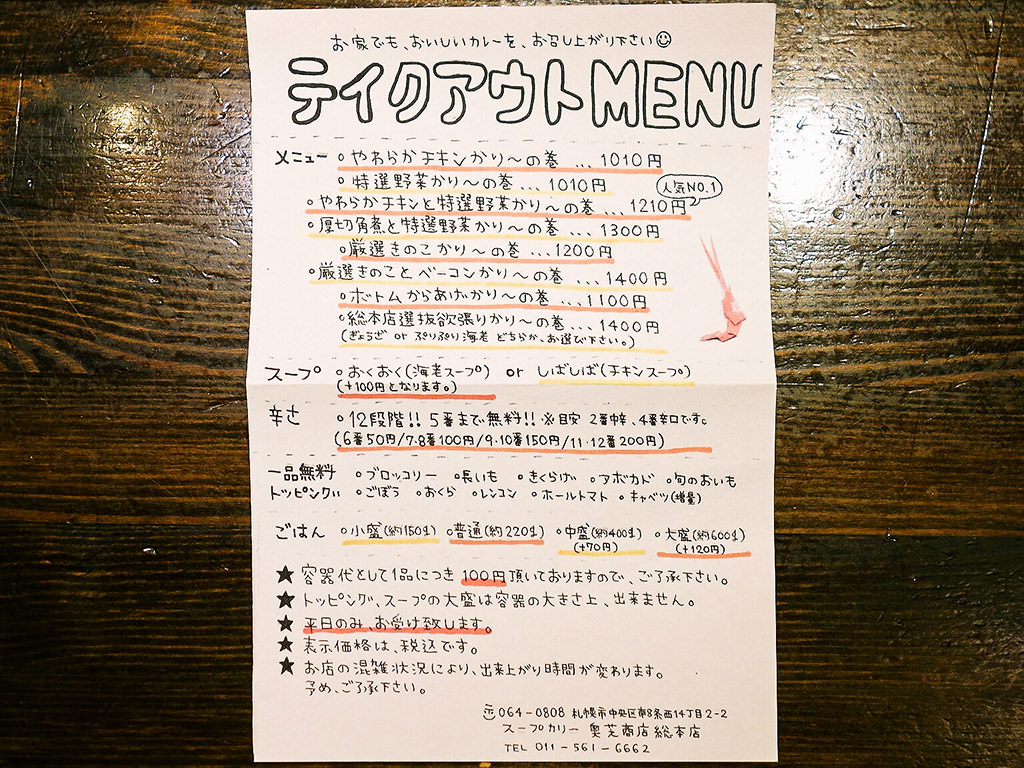 お家でも、おいしいカレーを、お召し上がり下さい☺
テイクアウトMENU
メニュー ○やわらかチキンかり〜の巻 ...1010円
○特選野菜かり〜の巻...1010円
人気NO.1
○やわらかチキンと特選野菜かり〜の巻...1210円
○厚切角煮と特選野菜かり〜の巻...1300円
○厳選きのこかり〜の巻...1200円
○厳選きのことベーコンかり〜の巻...1400円
○ボトムからあげかり〜の巻...1100円
○総本店選抜欲張りかり〜の巻...1400円
(ぎょうざ or ぷりぷり海老 どちらか、お選び下さい。)
スープ ○おくおく(海老スープ) or しばしば(チキンスープ)
(+100円となります。)
辛さ ○12段階!! 5番まで無料!! ※目安 2番中辛、4番辛口です。
(6番50円/7・8番100円/9・10番150円/11・12番200円)
一品無料 ○ブロッコリー ○長いも ○きくらげ ○アボカド ○旬のおいも
トッピング!! ○ごぼう ○おくら ○レンコン ○ホールトマト ○キャベツ(増量)
ごはん ○小盛(約150g) ○普通(約220g) ○中盛(約400g) ○大盛(約600g)
(+70円) (+120円)
★容器代として1品につき100円頂いておりますので、ご了承下さい。
★トッピング、スープの大盛は容器の大きさ上、出来ません。
★平日のみ、お受け致します。
★表示価格は、税込です。
★お店の混雑状況により、出来上がり時間が変わります。
予め、ご了承下さい。
〒064-0808 札幌市中央区南8条西14丁目2-2
スープカリー 奥芝商店 総本店
TEL 011-561-6662